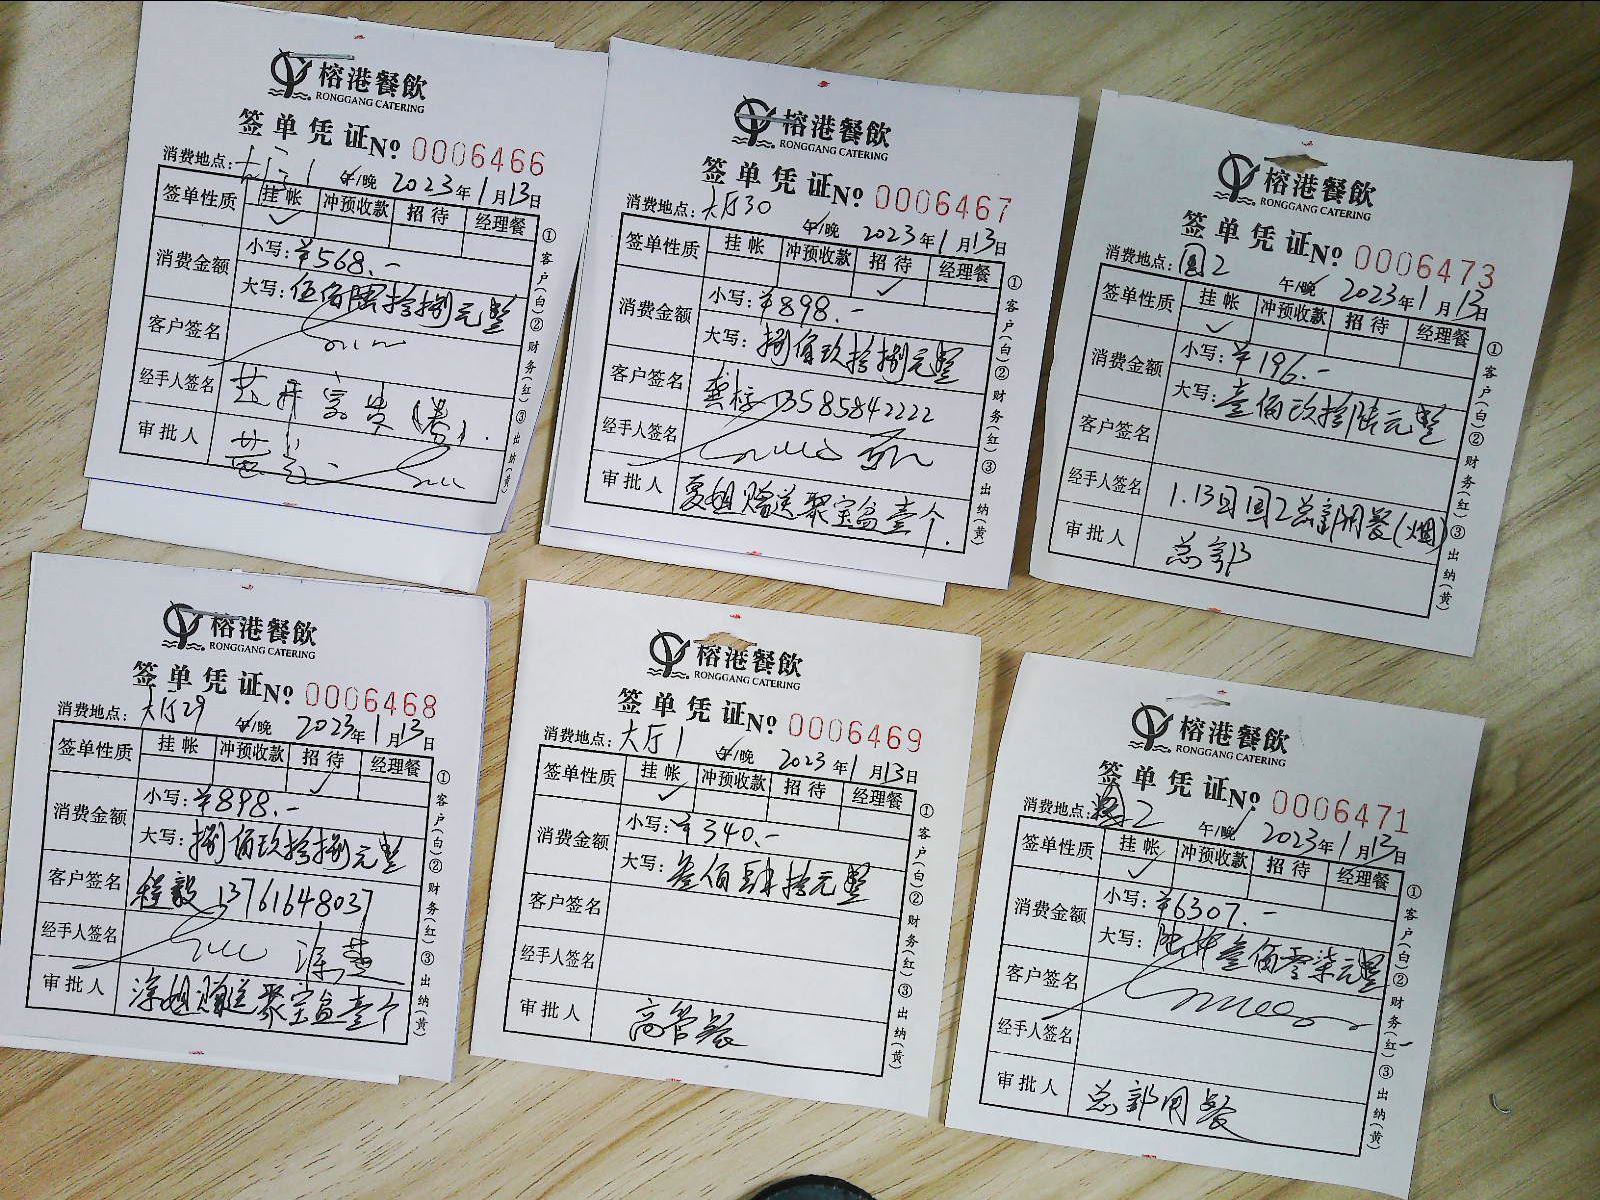 榕港餐飲
RONGGANG CATERING
签单凭证 No 0006466
消费地点: 大厅1 午/晚 2023年1月13日
签单性质 挂帐 冲预收款 招待 经理餐
✓
消费金额 小写: ¥568.-
大写: 伍佰陆拾捌元整
客户签名
经手人签名
审批人
①客户(白)②财务(红)③出纳(黄)
榕港餐飲
RONGGANG CATERING
签单凭证 No 0006467
消费地点: 大厅30 午/晚 2023年1月13日
签单性质 挂帐 冲预收款 招待 经理餐
✓
消费金额 小写: ¥898.-
大写: 捌佰玖拾捌元整
客户签名 龚标 13585842222
经手人签名
审批人 夏姐赠送聚宝盆壹个.
①客户(白)②财务(红)③出纳(黄)
榕港餐飲
RONGGANG CATERING
签单凭证 No 0006473
消费地点: 国2 午/晚 2023年1月13日
签单性质 挂帐 冲预收款 招待 经理餐
✓
消费金额 小写: ¥196.-
大写: 壹佰玖拾陆元整
客户签名
经手人签名 1.13日国2总部用餐(烟)
审批人 总部
①客户(白)②财务(红)③出纳(黄)
榕港餐飲
RONGGANG CATERING
签单凭证 No 0006468
消费地点: 大厅29 午/晚 2023年1月13日
签单性质 挂帐 冲预收款 招待 经理餐
✓
消费金额 小写: ¥898.-
大写: 捌佰玖拾捌元整
客户签名 程毅 13761648037
经手人签名 涂燕
审批人 涂姐赠送聚宝盆壹个
①客户(白)②财务(红)③出纳(黄)
榕港餐飲
RONGGANG CATERING
签单凭证 No 0006469
消费地点: 大厅1 午/晚 2023年1月13日
签单性质 挂帐 冲预收款 招待 经理餐
✓
消费金额 小写: ¥340.-
大写: 叁佰肆拾元整
客户签名
经手人签名
审批人 高管餐
①客户(白)②财务(红)③出纳(黄)
榕港餐飲
RONGGANG CATERING
签单凭证 No 0006471
消费地点: 国2 午/晚 2023年1月13日
签单性质 挂帐 冲预收款 招待 经理餐
✓
消费金额 小写: ¥6307.-
大写: 陆仟叁佰零柒元整
客户签名
经手人签名
审批人 总部用餐
①客户(白)②财务(红)③出纳(黄)